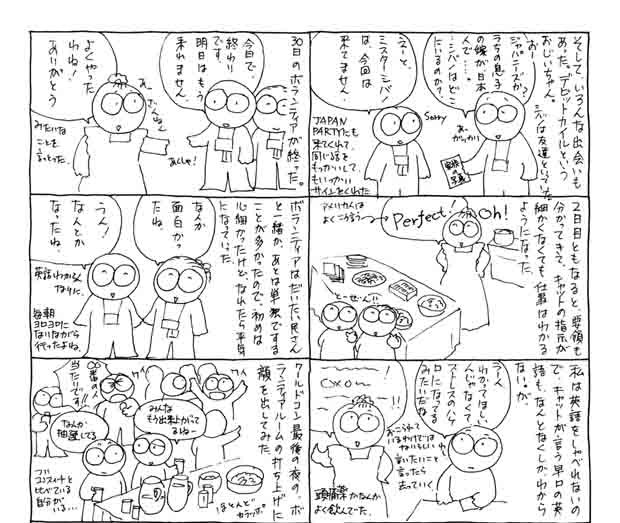 そして、いろんな出会いも
あった。デロットカイルという
おじいちゃん。
シバは友達といっていた
おー
ジャパニーズか？
うちの息子
の嫁が日本
人で…。
シバはどこ
にいるのか？
えーと、
ミスターシバ
は、今回は
来てません。
Sorry
あー
がっかり
家族の
写真
JAPAN
PARTYにも
来てくれて、
同じ話を
もっかいして、
もいっかい
サインをくれた
30日のボランティアが終った。
今日で、
終わり
です。
明日はもう
来れません。
あくしゅ！
よくやった
わね！
ありがとう
みたいな
ことを
言ってった。
2日目ともなると、要領も
分かってきて、キャットの指示が
細かくなくても仕事はわかる
ようになった。
アメリカ人は
よくこう言う→
Perfect!
Oh!
とーぜん!!
ボランティアはだいたい民さん
と一緒か、あとは単独でする
ことが多かったので、初めは
心細かったけど、なれたら平気
になっていた。
なんか
面白かっ
たね。
うん！
なんとか
なったね。
英語わからん
なりに。
毎朝
ヨロヨロに
なりながら
行ったよね。
私は英語をしゃべれないの
で、キャットが言う早口の英
語も、なんとなくしかわから
ないが、
うーん
わかってほしい
んじゃなくて
ストレスのハケ
口になってる
みたいだな
おこられて
いるわけでは
ないらしい
言いたいこと
言ったら
去っていく
頭痛薬かなんか
よく飲んでた。
ワールドコン最後の夜の、ボ
ランティアルームの打ち上げに
顔を出してみた。
ワイ
ワイ
○○番の
当たりです!!
なんか
抽選してる
みんな
もう出来上がって
るねー
コンスイートと
比べている
自分が
いる…
ほとんど
カラッポ